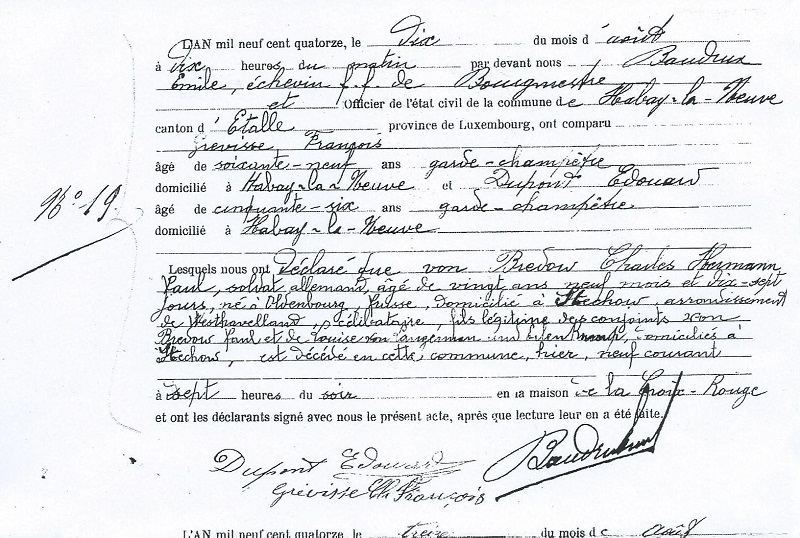 L'AN mil neuf cent quatorze, le dix du mois d'août
à dix heures du matin par devant nous
Emile, échevin f.f. de Bourgmestre
et Officier de l'état civil de la commune de Habay-la-Neuve
canton d'Etalle province de Luxembourg, ont comparu
Grévisse, François
âgé de soixante-neuf ans garde-champêtre
domicilié à Habay-la-Neuve et Dupont Edouard
âgé de cinquante-six ans garde-champêtre
domicilié à Habay-la-Neuve
No 19
Lesquels nous ont Déclaré que von Bredow Charles Hermann
Paul, soldat allemand, âgé de vingt ans neuf mois et dix-sept
jours, né à Oldenbourg, Prusse, domicilié à Stechow, arrondissement
de Westhavelland, célibataire, fils légitime des conjoints von
Bredow Paul et de Louise von domiciliés à
Stechow, est décédé en cette commune, hier, neuf courant
à sept heures du soir en la maison de la Croix-Rouge
et ont les déclarants signé avec nous le présent acte, après que lecture leur en a été faite.
Dupont Edouard
Grévisse Ch François
L'AN mil neuf cent quatorze, le treize du mois de août